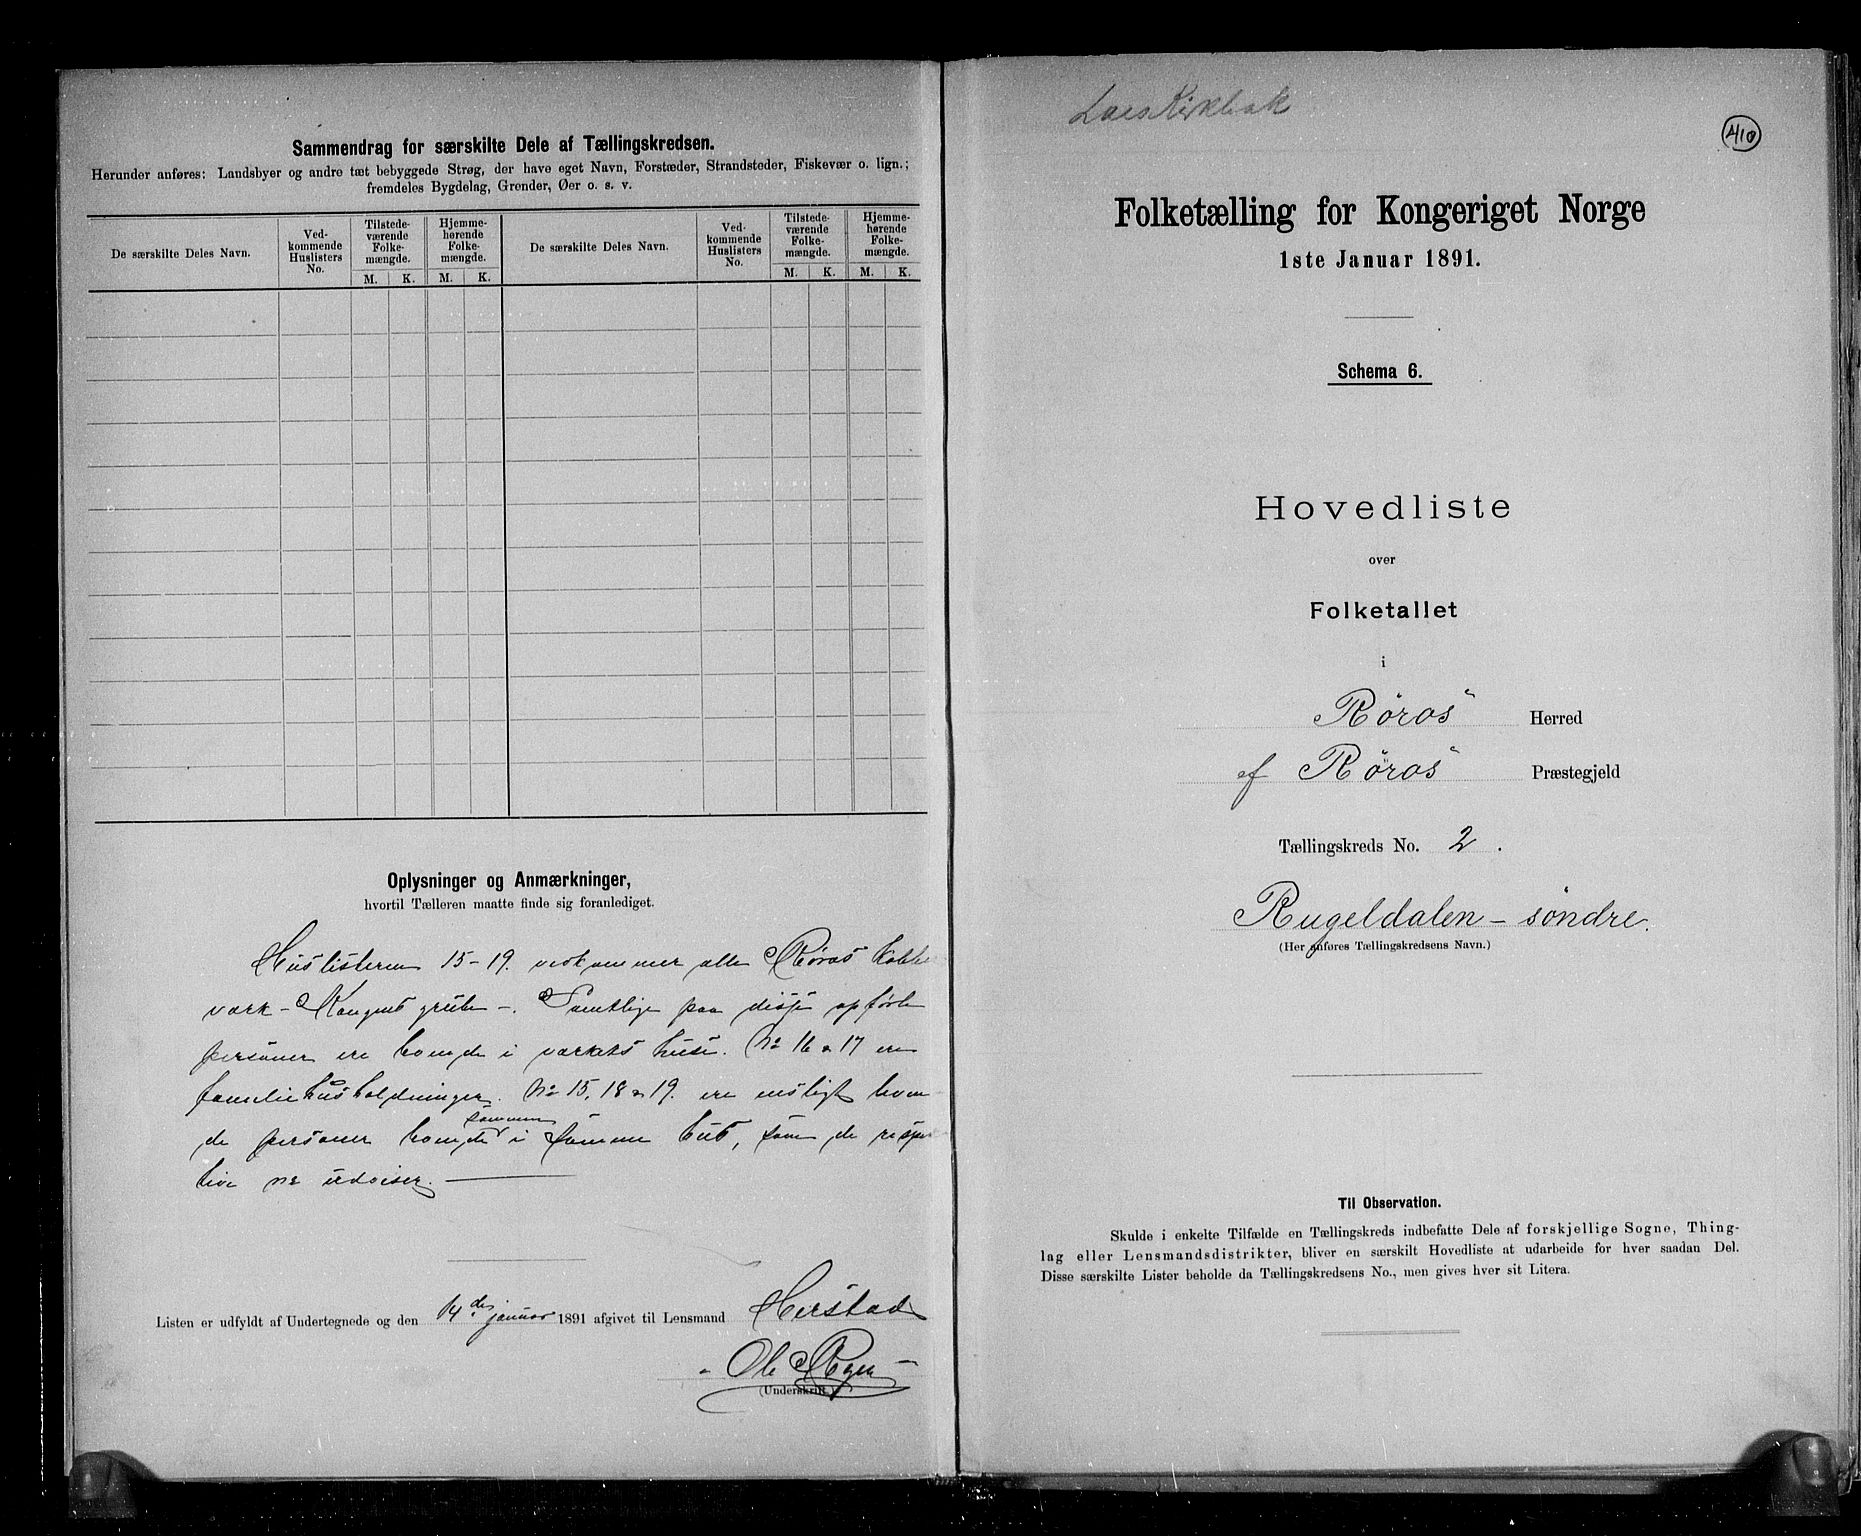 Sammendrag for særskilte Dele af Tællingskredsen.
Herunder anføres: Landsbyer og andre tæt bebyggede Strøg, der have eget Navn, Forstæder, Strandsteder, Fiskevær o. lign.;
fremdeles Bygdelag, Grender, Øer o. s. v.
De særskilte Deles Navn.
Ved-
kommende
Huslisters
No.
Tilstede-
værende
Folke-
mængde.
Hjemme-
hørende
Folke-
mængde.
M. K. M. K.
De særskilte Deles Navn.
Ved-
kommende
Huslisters
No.
Tilstede-
værende
Folke-
mængde.
Hjemme-
hørende
Folke-
mængde.
M. K. M. K.
Oplysninger og Anmærkninger,
hvortil Tælleren maatte finde sig foranlediget.
Huslisterne 15-19. vedkommer alle Røros Kobber
værk - Kongens grube -. Samtlige paa disse opførte
personer ere boende i værkets huse. No 16 & 17 ere
familiehusholdninger. No 15, 18 & 19. ere ensligt boen
de personer boende sammen i samme hus, som de respek
tive no udviser.
Listen er udfyldt af Undertegnede og den 14de januar 1891 afgivet til Lensmand Herstad
- Ole -
(Underskrift.)
Lars Kirkbak
410
Folketælling for Kongeriget Norge
1ste Januar 1891.
Schema 6.
Hovedliste
over
Folketallet
i
Røros Herred
af Røros Præstegjeld
Tællingskreds No. 2.
Rugeldalen - søndre.
(Her anføres Tællingskredsens Navn.)
Til Observation.
Skulde i enkelte Tilfælde en Tællingskreds indbefatte Dele af forskjellige Sogne, Thing-
lag eller Lensmandsdistrikter, bliver en særskilt Hovedliste at udarbeide for hver saadan Del.
Disse særskilte Lister beholde da Tællingskredsens No., men gives hver sit Litera.